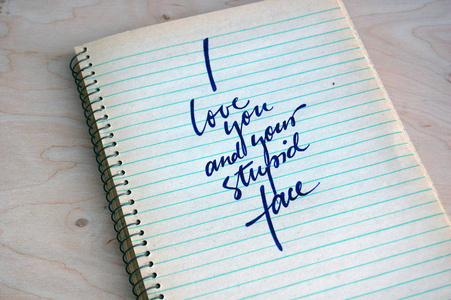 I
love
you
and your
stupid
face